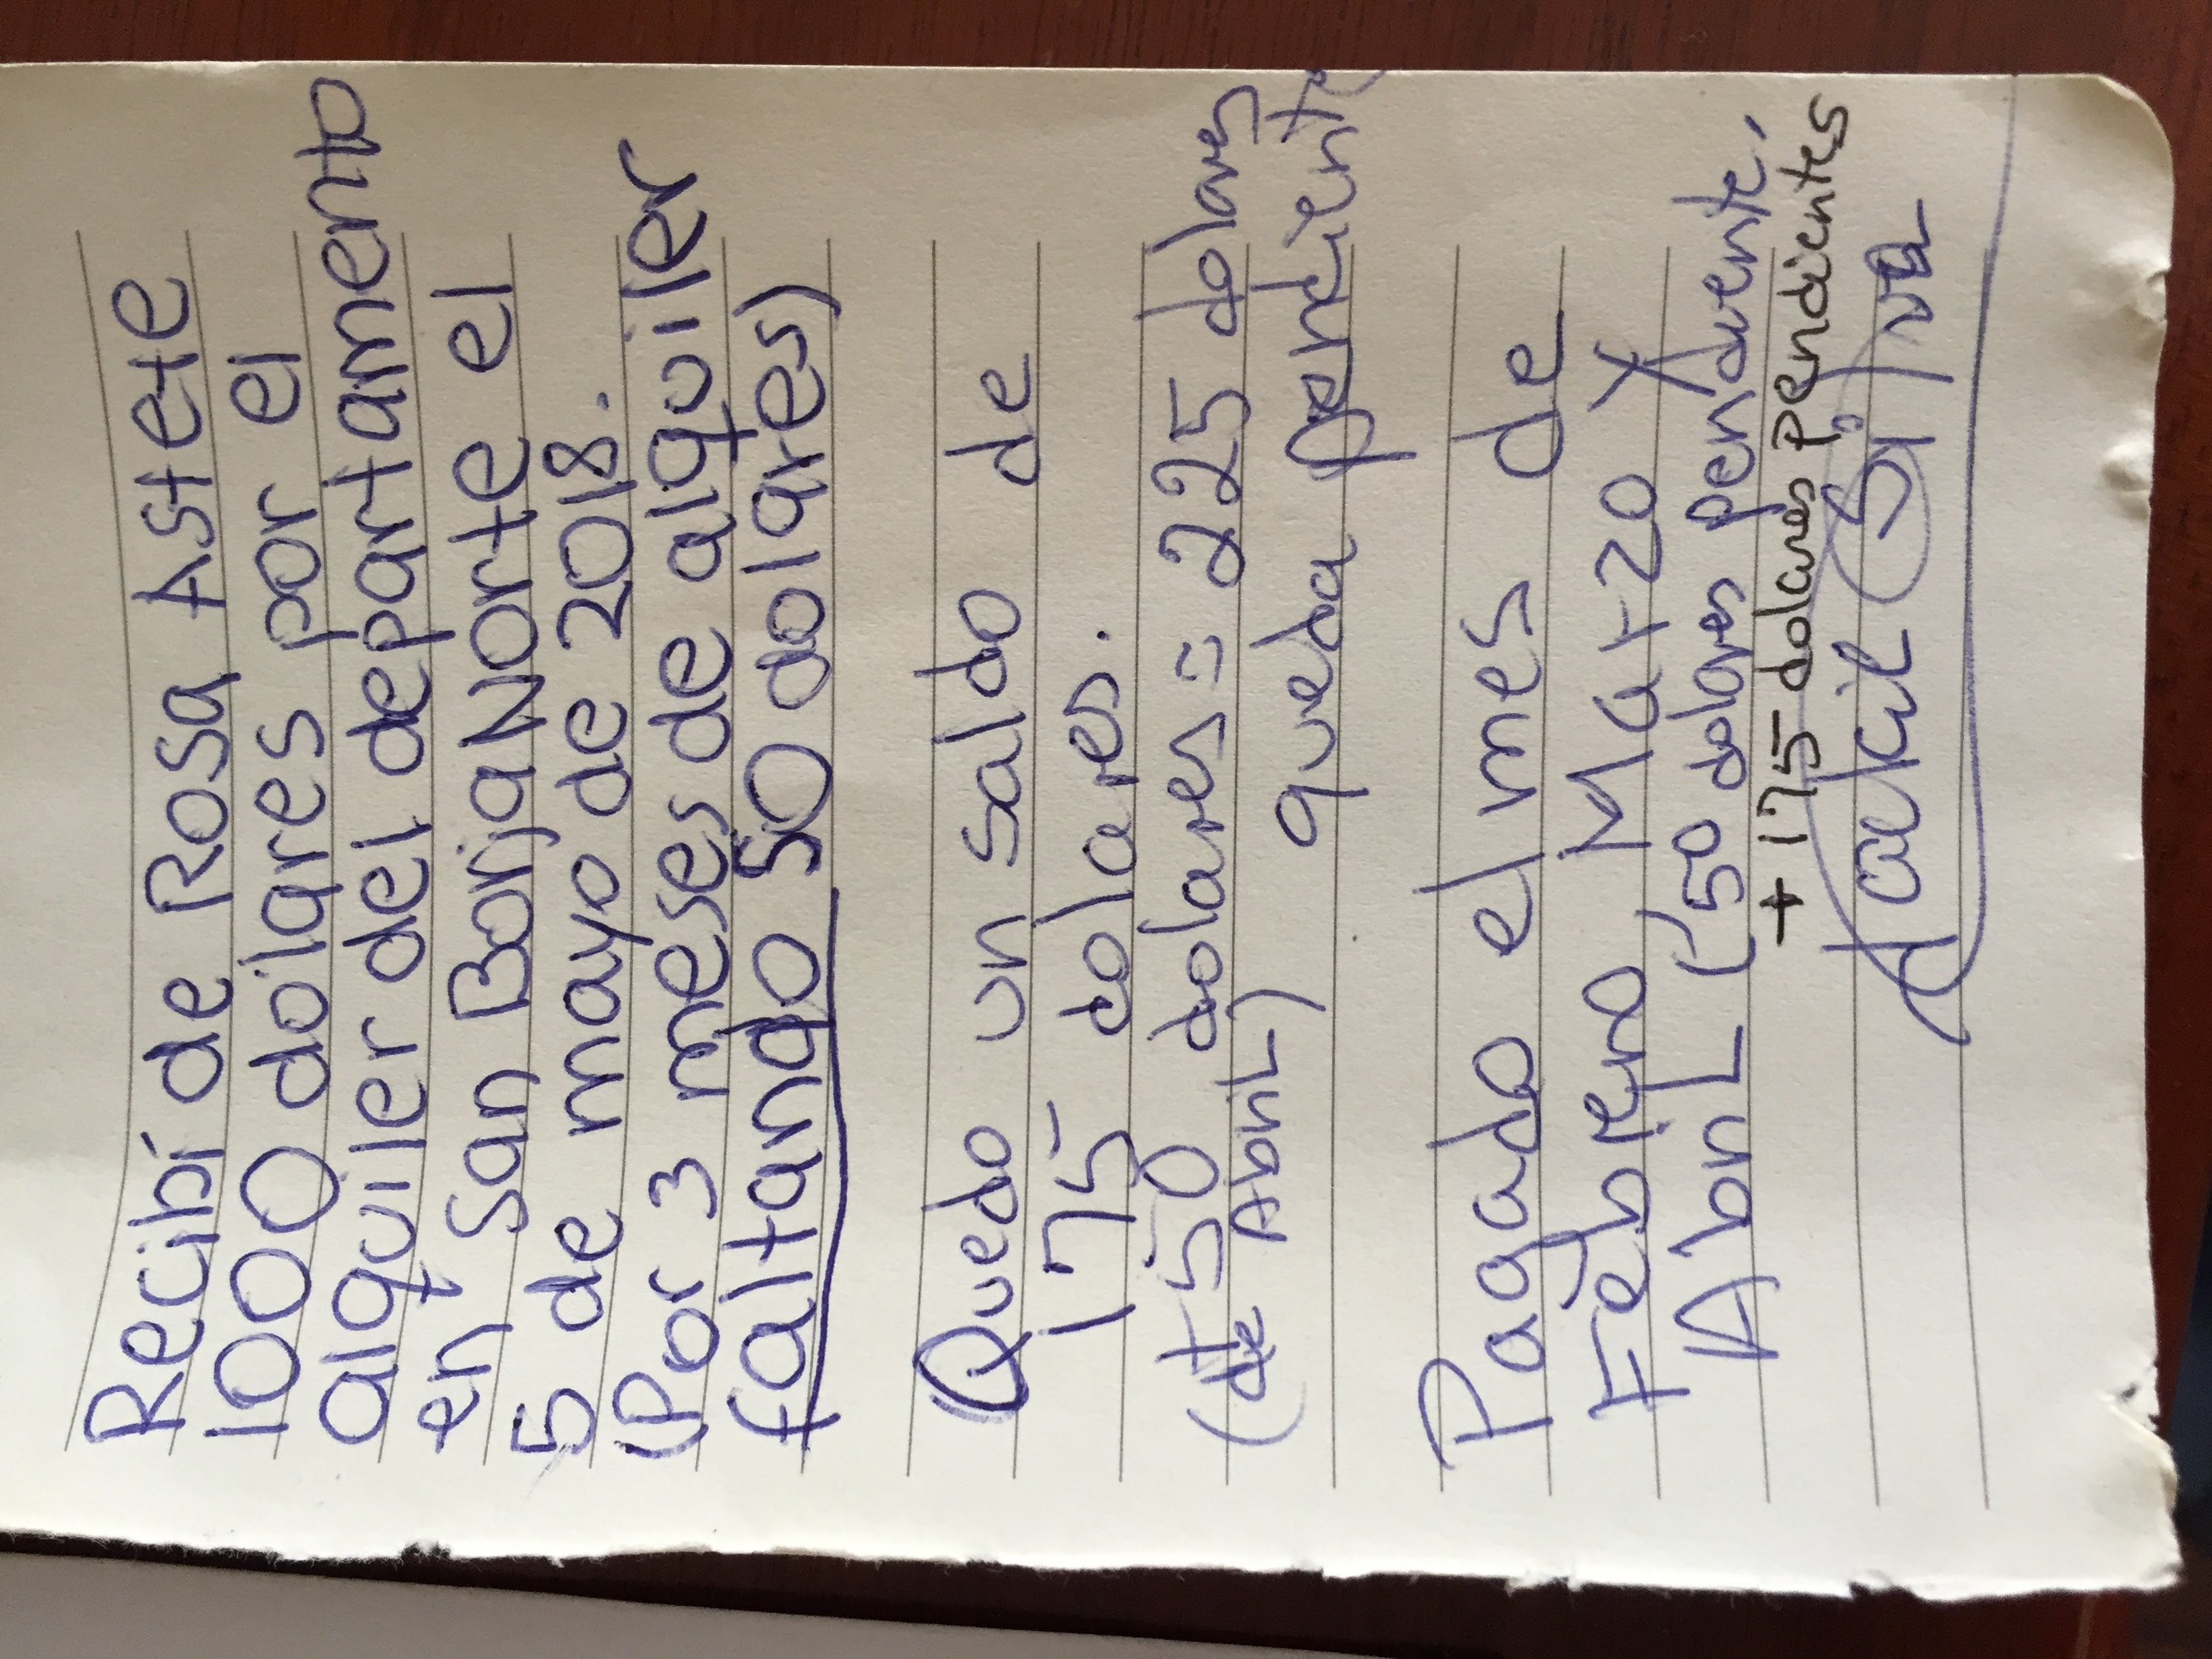 Recibí de Rosa Astete
1000 dólares por el
alquiler del departamento
en San Borja Norte el
5 de mayo de 2018.
(Por 3 meses de alquiler
faltando 50 dolares)
Quedo un saldo de
175 dolares.
+ 50 dolares = 225 dolares
(de Abril) queda pendiente
Pagado el mes de
Febrero Marzo y
Abril (50 dolares pendiente)
+ 175 dolares pendientes
Silva